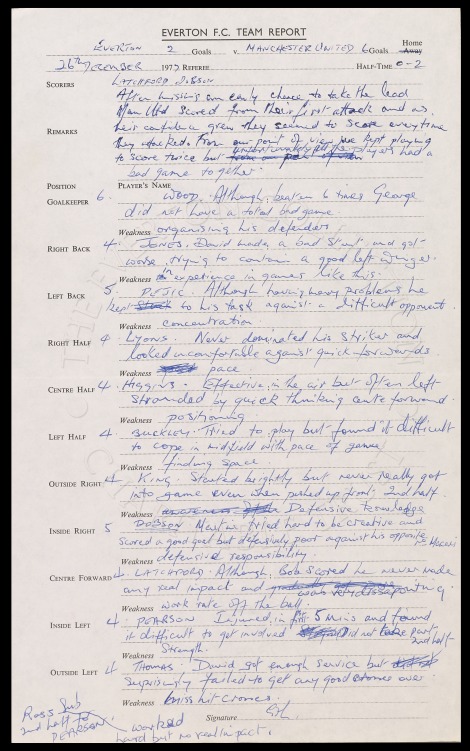 EVERTON F.C. TEAM REPORT
EVERTON 2 Goals v. MANCHESTER UNITED 6 Goals Home Away
26TH DECEMBER 1977 REFEREE HALF-TIME 0-2
SCORERS LATCHFORD DOBSON
After missing an early chance to take the lead
Man Utd scored from their first attack and as
their confidence grew they seemed to score everytime
REMARKS they attacked. From our point of view we kept playing
to score twice but unfortunately all the players had a
bad game together.
POSITION PLAYER'S NAME
GOALKEEPER 6. WOOD. Although beaten 6 times George
did not have a total bad game.
Weakness organising his defenders
RIGHT BACK 4. JONES. David made a bad start and got
worse trying to contain a good left winger.
Weakness inexperience in games like this.
LEFT BACK 5 PEJIC. Although having heavy problems he
kept to his task against a difficult opponent
Weakness concentration
RIGHT HALF 4 LYONS. Never dominated his striker and
looked uncomfortable against quick forwards
Weakness pace
CENTRE HALF 4 HIGGINS. Effective in the air but often left
stranded by quick thinking centre forward.
Weakness positioning.
LEFT HALF 4 BUCKLEY. Tried to play but found it difficult
to cope in midfield with pace of game
Weakness finding space
OUTSIDE RIGHT 4 KING. Started brightly but never really got
into game even when pushed up front 2nd half.
Weakness Defensive knowledge
INSIDE RIGHT 5 DOBSON. Martin tried hard to be creative and
scored a good goal but defensively poor against his opposite
Weakness defensive responsibility.
CENTRE FORWARD 4 LATCHFORD. Although Bob scored he never made
any real impact and was very dissapointing.
Weakness work rate off the ball.
INSIDE LEFT 4 PEARSON Injured in first 5 mins and found
it difficult to get involved did not take part 2nd half
Weakness Strength.
OUTSIDE LEFT 4 THOMAS. David got enough service but
surprisingly failed to get any good crosses over
Weakness miss hit crosses.
Ross Sub Signature
2nd half for
PEARSON. worked
hard but no real impact.